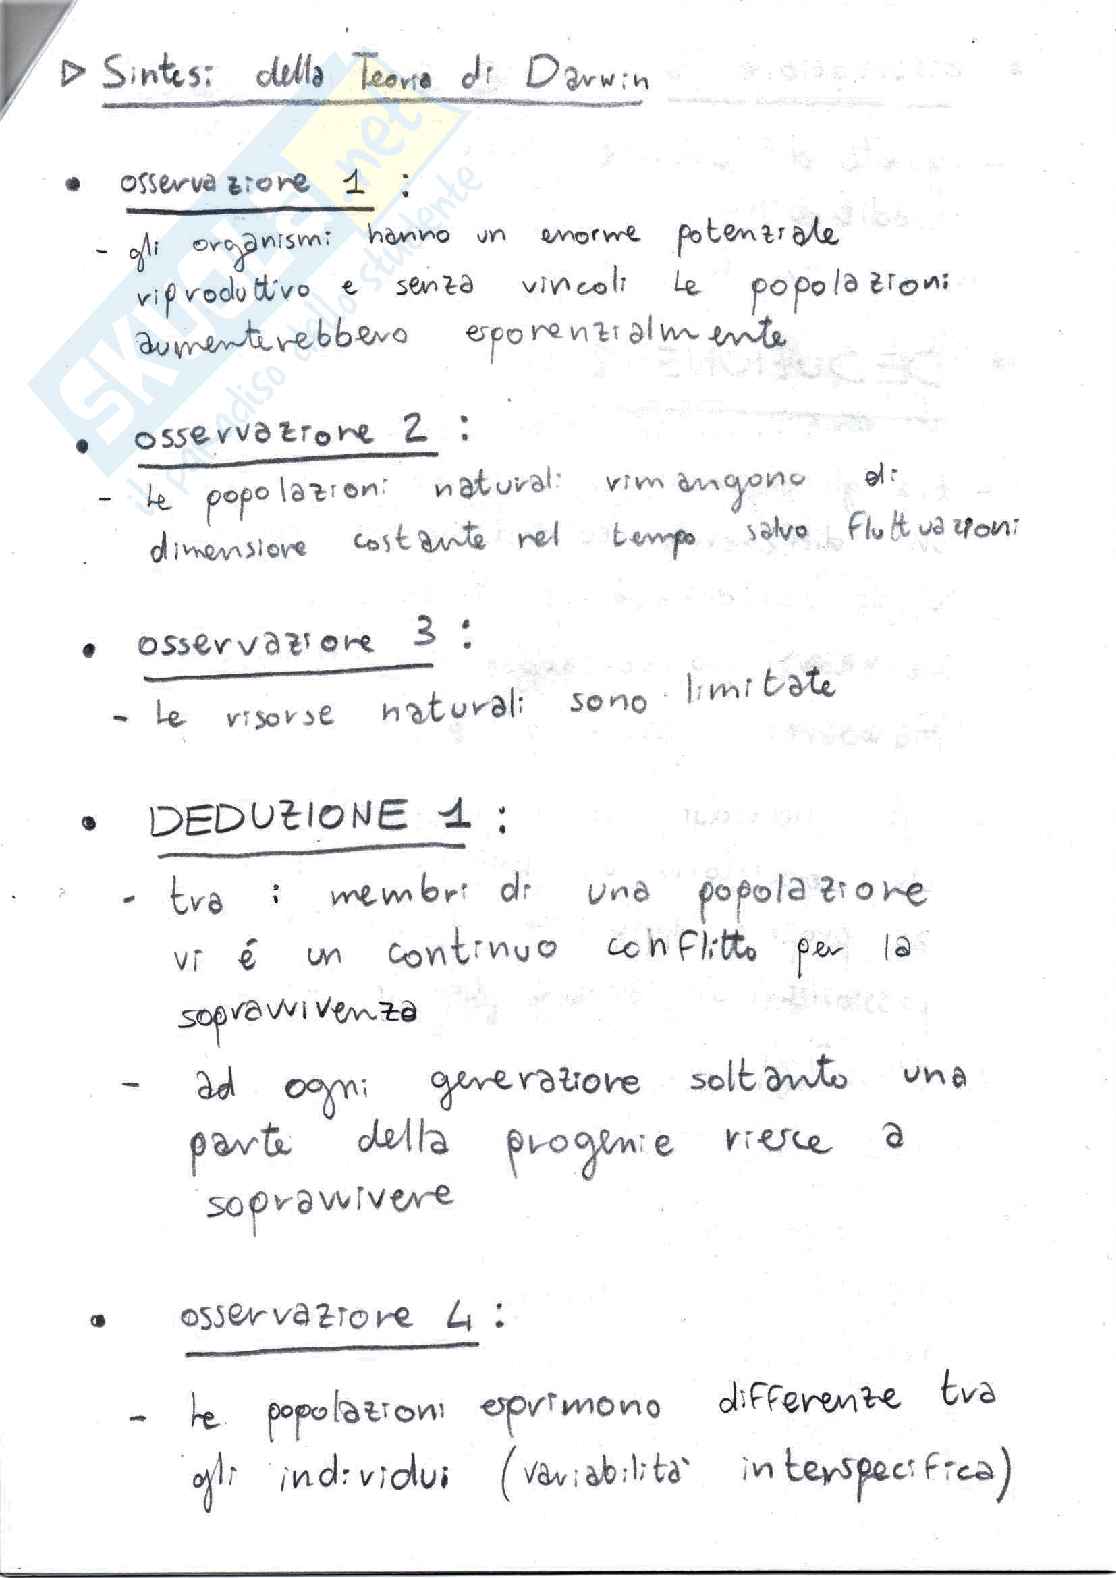 ▷ Sintesi della Teoria di Darwin
• osservazione 1 :
- gli organismi hanno un enorme potenziale
riproduttivo e senza vincoli le popolazioni
aumenterebbero esponenzialmente
• osservazione 2 :
- le popolazioni naturali rimangono di
dimensione costante nel tempo salvo fluttuazioni
• osservazione 3 :
- le risorse naturali sono limitate
• DEDUZIONE 1 :
- tra i membri di una popolazione
vi é un continuo conflitto per la
sopravvivenza
- ad ogni generazione soltanto una
parte della progenie riesce a
sopravvivere
• osservazione 4 :
- le popolazioni esprimono differenze tra
gli individui (variabilità interspecifica)
SKUOLA.net
il paradiso dello studente